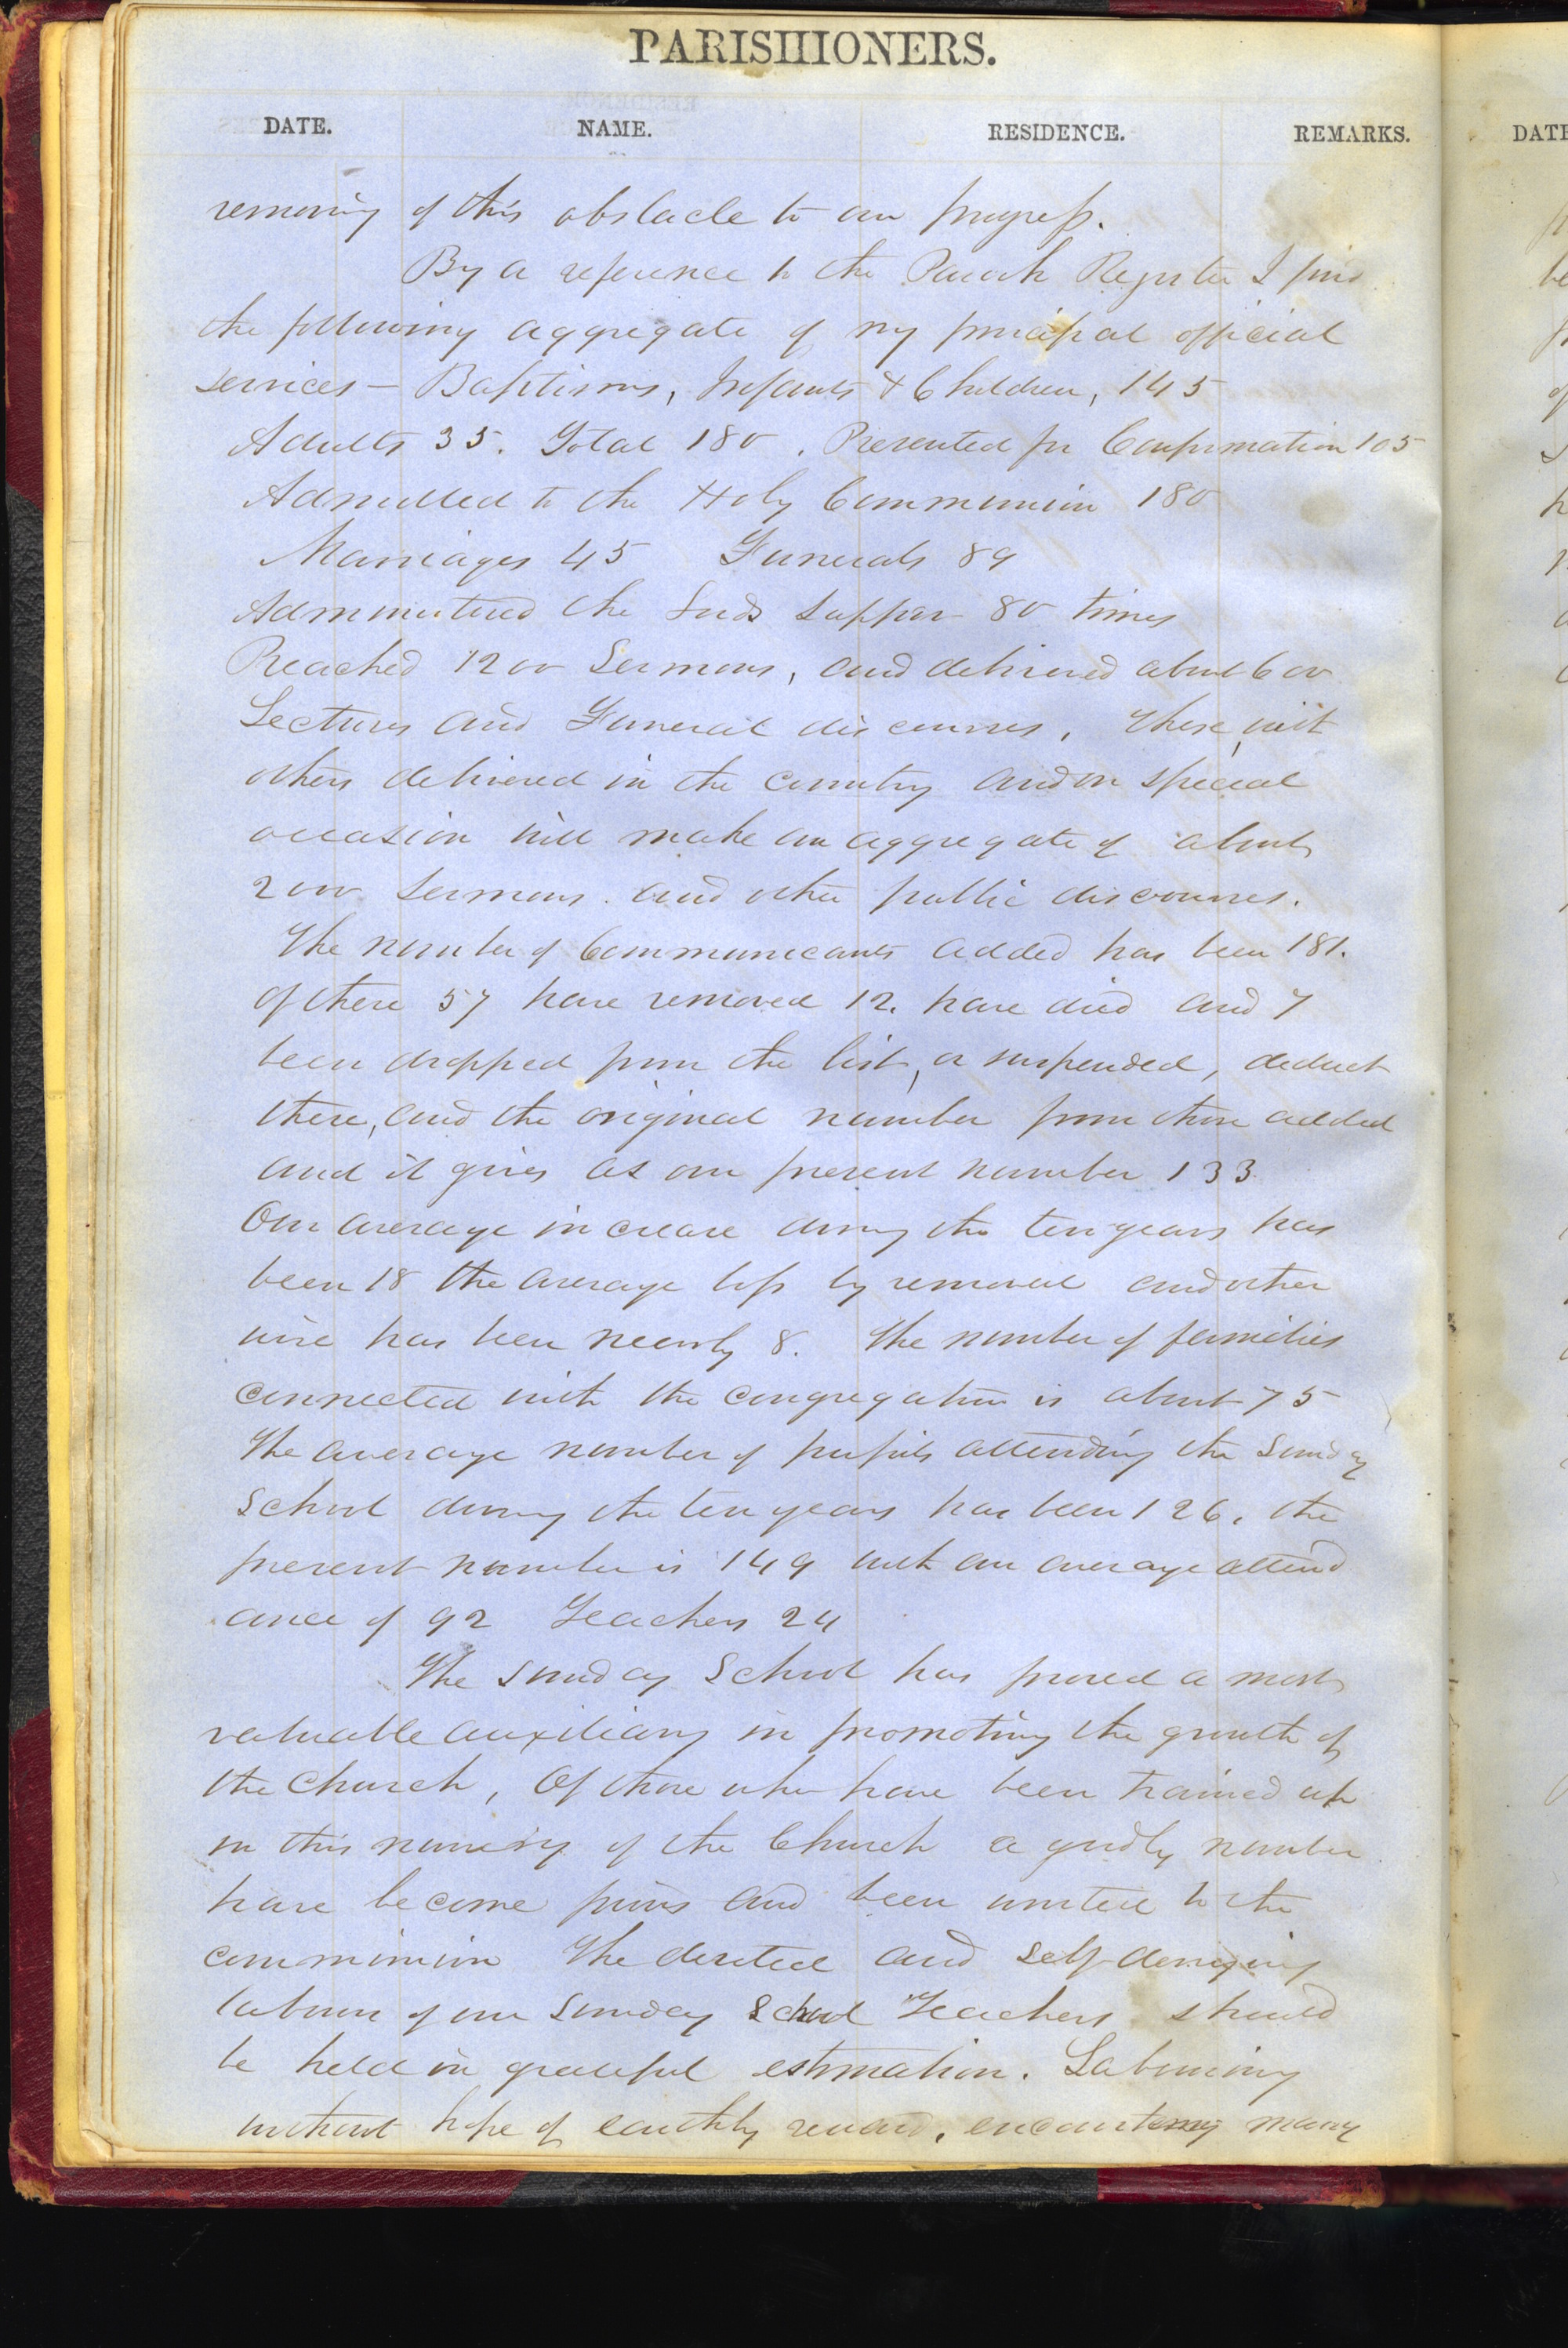 PARISHIONERS.
DATE. NAME. RESIDENCE. REMARKS.
removing of this obstacle to our progress.
By a reference to the Parish Register I find
the following aggregate of my principal official
services — Baptisms, Infants & Children, 145
Adults 35. Total 180. Presented for Confirmation 105
Admitted to the Holy Communion 180
Marriages 45 Funerals 89
Administered the Lords Supper 80 times
Preached 1200 Sermons, and delivered about 600
Lectures and Funeral discourses, These, with
others delivered in the country and on special
occasion will make an aggregate of about
2000 Sermons. and other public discourses.
The number of Communicants added has been 181.
Of these 57 have removed 12. have died and 7
been dropped from the list, or suspended, deduct
these, and the original number from those added
and it gives as our present number 133
Our average increase during the ten years has
been 18 the average loss by removal and other
wise has been nearly 8. The number of families
connected with the congregation is about 75
The average number of pupils attending the Sunday
School during the ten years has been 126, the
present number is 149 with an average attend
ance of 92 Teachers 24
The Sunday School has proved a most
valuable auxiliary in promoting the growth of
the Church, Of those who have been trained up
in this nursery of the Church a goodly number
have become pious and been united to the
communion The devoted and self-denying
labours of our Sunday School Teachers should
be held in grateful estimation. Labouring
without hope of earthly reward, encountering many
DATE